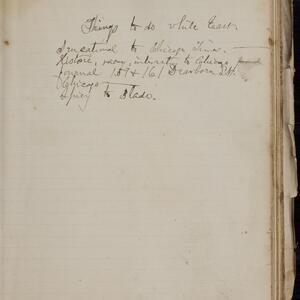 Things to do while East
Sensational to Chicago Times
Historic, racy, interest to Chicago
Journal 159 & 161 Dearborn St.
Chicago
Spicy to Blade.